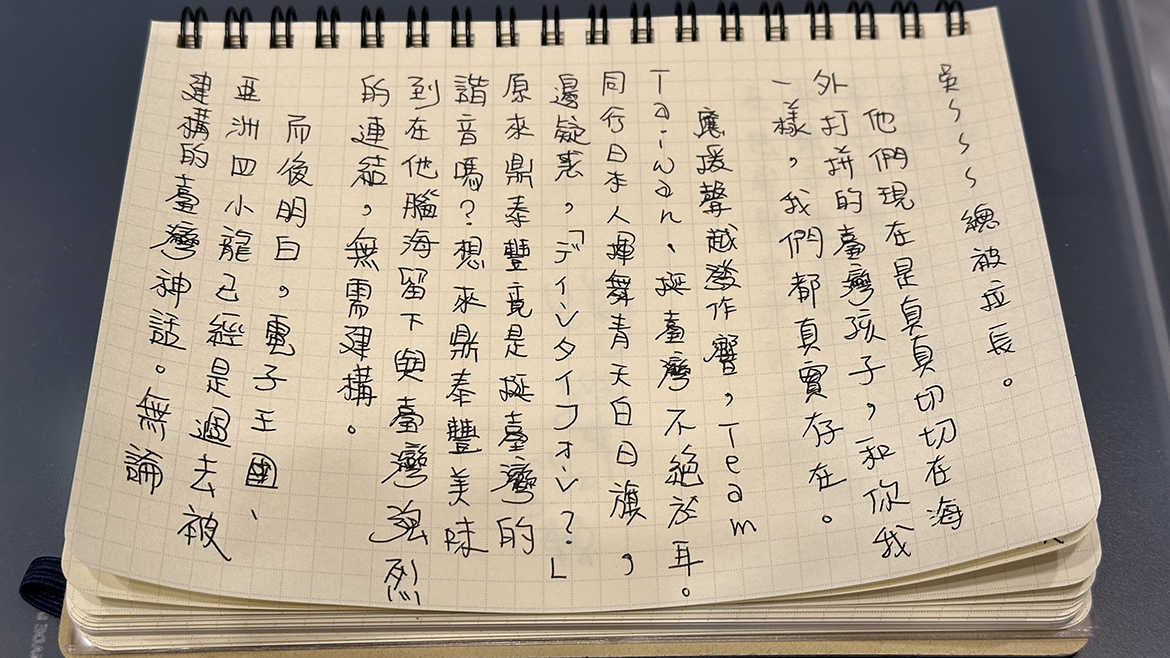 吳~~~總被拉長。
他們現在是真真切切在海
外打拼的臺灣孩子，和你我
一樣，我們都真實存在。
應援聲越發作響，Team
Taiwan、挺臺灣不絕於耳。
同行日本人揮舞青天白日旗，
邊疑惑，「ディンタイフォン？」
原來鼎泰豐竟是挺臺灣的
諧音嗎？想來鼎泰豐美味
到在他腦海留下與臺灣強烈
的連結，無需建構。
而後明白。電子王國、
亞洲四小龍已經是過去被
建構的臺灣神話。無論